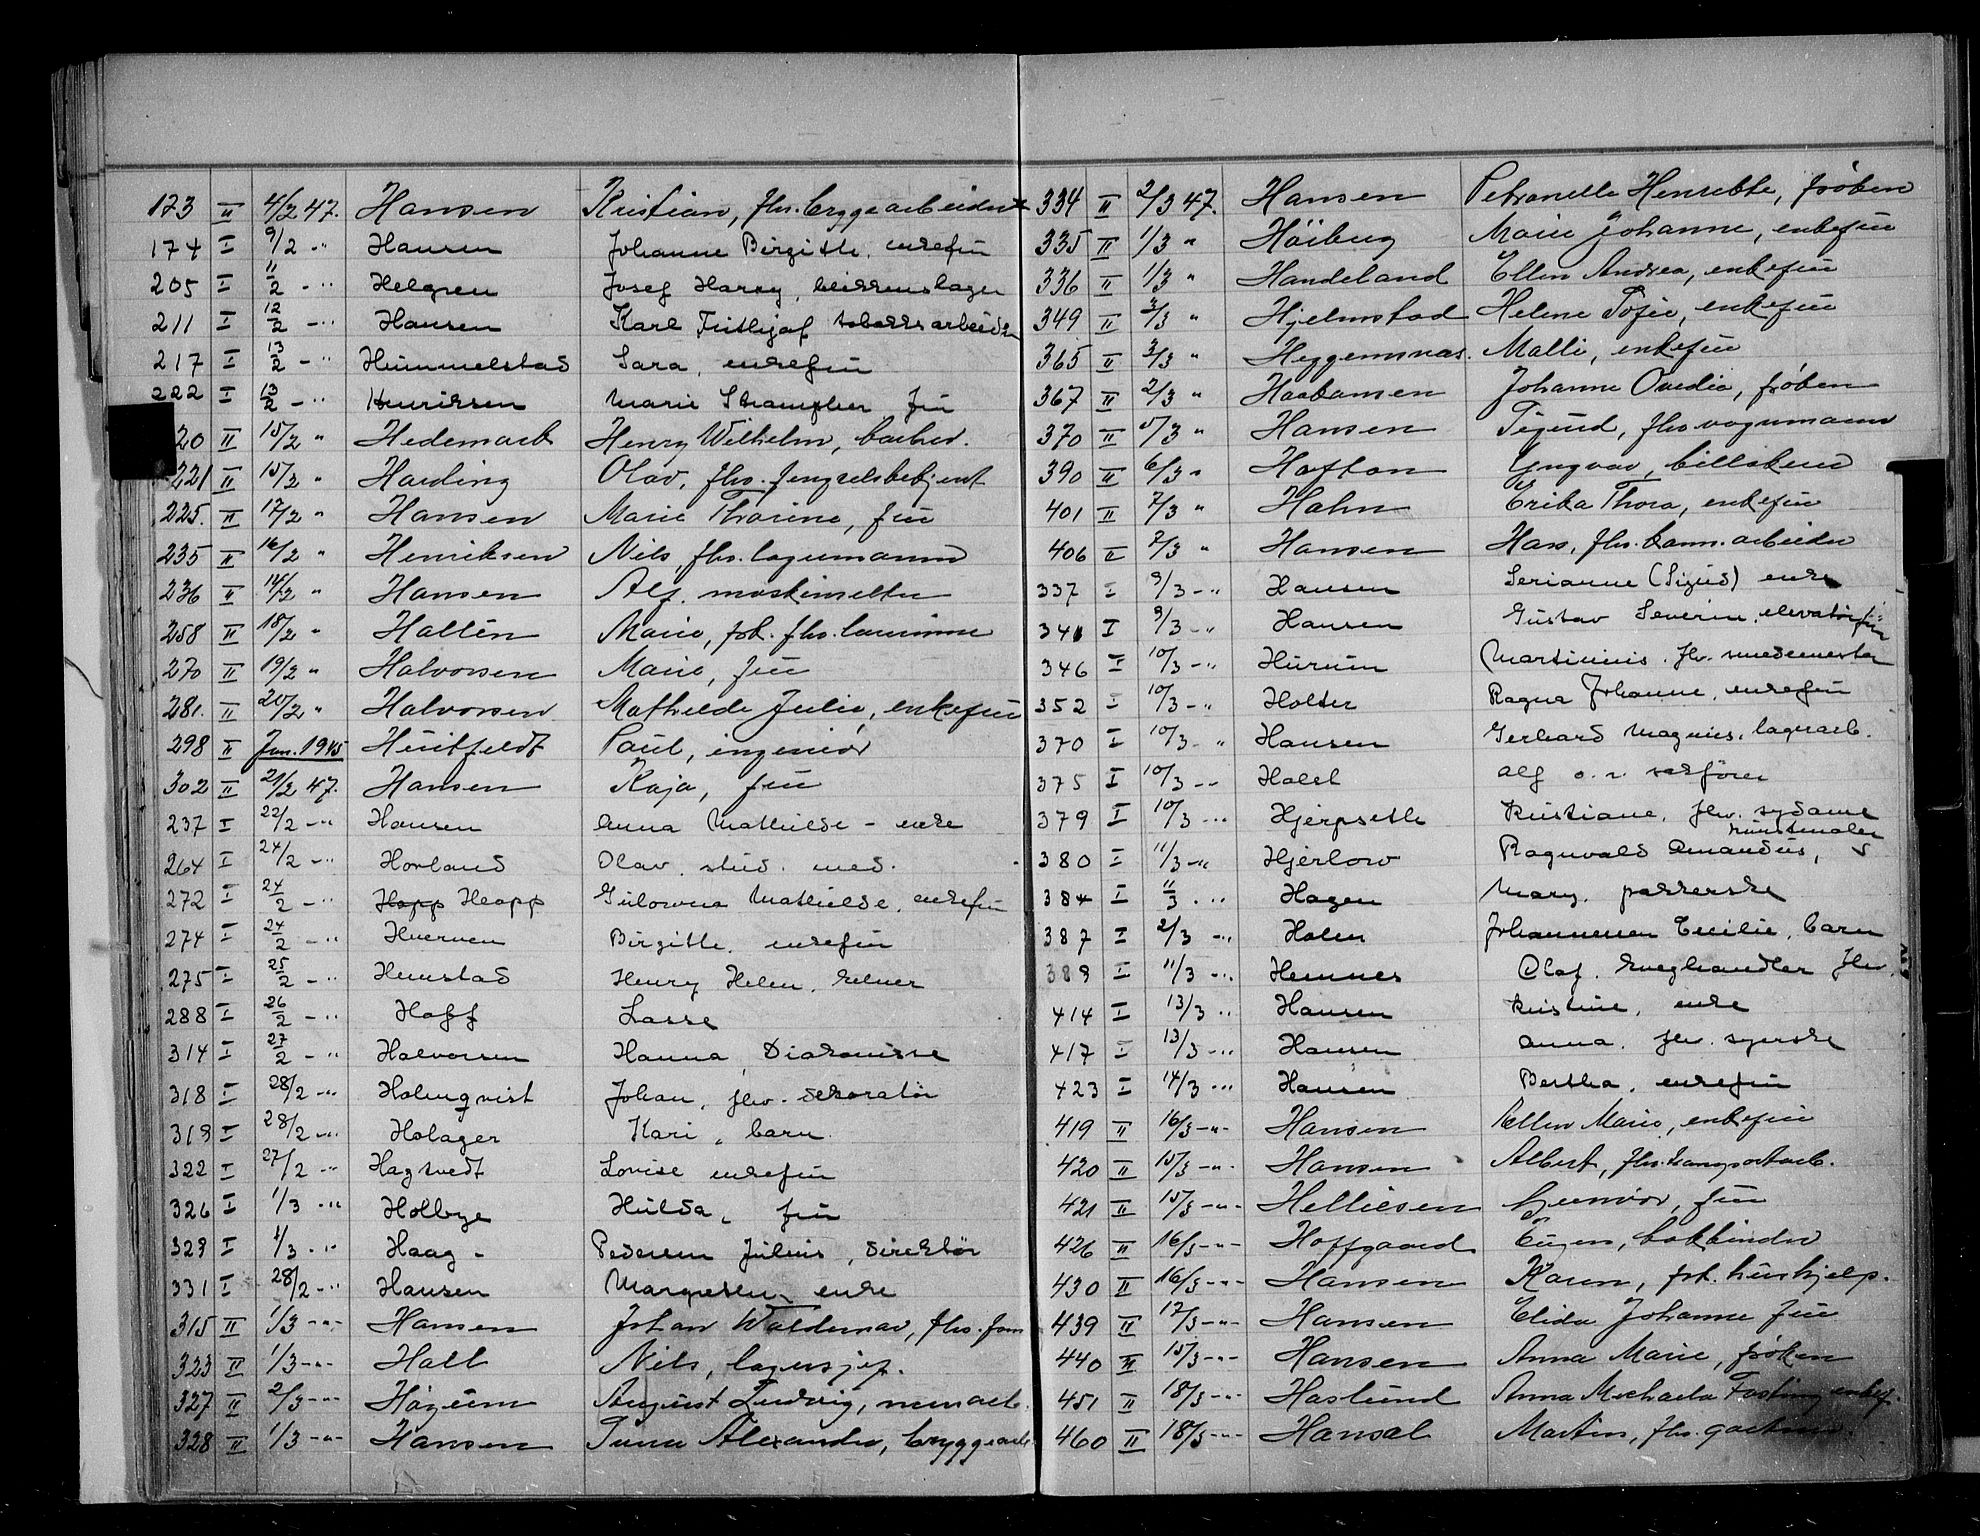 173 II 4/2 47. Hansen Kristian, fhv. bryggearbeider
174 I 9/2 -" Hansen Johanne Birgitte, enkefru
205 I 11/2 -" Helgren Josef Harry, blikkenslager
211 I 12/2 -" Hansen Karl Frithjof tobakksarbeider
217 I 13/2 -" Hummelstad Sara, enkefru
222 I 13/2 -" Henriksen Marie fru
20 II 15/2 " Hedemark Henry Wilhelm, barber.
221 II 15/2 " Harding Olav, fhv. fengselsbetjent
225. II 17/2 " Hansen Marie Thorine, fru
235 II 16/2 " Henriksen Nils, fhv. lagermann
236 II 14/2 " Hansen Alf, maskinsetter
258 II 18/2 " Hallén Marie, frk. fhv.
270 II 19/2 " Halvorsen Marie, fru
281. II 20/2 " Halvorsen Mathilde Julie, enkefru
298 II Jan. 1945 Huitfeldt Paul, ingeniør
302 II 21/2 47. Hansen Kaja, fru
237 I 22/2 -" Hansen Anna Mathilde - enke
264 I 24/2 -" Hovland Olav, stud. med.
272 I 24/2 -" Hopp Heopp Mathilde, enkefru
274 I 24/2 -" Hverven Birgitte, enkefru
275 I 25/2 -" Henstad Henry Helen, kelner
288 I 26/2 -" Hoff Lasse
314 I 27/2 -" Halvorsen Hanna, Diakonisse
318 I 28/2 -" Holmqvist Johan, fhv. dekoratør
319 I 28/2 -" Holager Kari, barn
322 I 27/2 -" Hagtvedt Lovise enkefru
326 I 1/3 -" Holbye Hulda, fru
329 I 1/3 -" Haag - Pedersen Julius, direktør
331 I 28/2 -" Hansen Margrethe, enke
315 II 1/3 -"- Hansen Johan Waldemar, fhv.
323 II 1/3 -"- Hall Nils, lagersjef.
327 II 2/3 -"- Høgum August Ludvig, murarb.
328 II 1/3 -"- Hansen Alexander, bryggearb
334 II 2/3 47. Hansen Petronelle Henrette, frøken
335 II 1/3 " Høiberg Marie Johanne, enkefru
336 II 1/3 " Handeland Ellen Andrea, enkefru
349 II 3/3 " Hjelmstad Helene Sofie, enkefru
365 II 3/3 " Heggemsnes. Malli, enkefru
367 II 2/3 " Haakonsen Johanne Ovedia, frøken
370 II 5/3 " Hansen Sigurd, fhv. vognmann
390 II 6/3 " Hafton Yngvar, billskjær
401 II 7/3 " Hahn Erika Thora, enkefru
406 II 7/3 " Hansen Hans, fhv. komm. arbeider
337 I 9/3 -" Hansen Serianne (Sigrid) enke
341 I 9/3 -" Hansen Gustav Severin,
346 I 10/3 -" Hurum Martinius, fhv. smedmester
352 I 10/3 -" Holter Ragna Johanne, enkefru
370 I 10/3 - " Hansen Gerhard Magnus, lagerarb.
375 I 10/3 -- Holst Alf o. r. sakfører
379 I 10/3 -" Hjerpseth Kristiane, fhv. sydame
380 I 11/3 -" Hjerlow Ragnvald Amandus, kunstmaler
384 I 11/3 -" Hagen Mary, pakkerske
387 I 2/3 -" Holen Johannessen Cecilie, barn
389 I 11/3 -" Hemnes Olaf, kveghandler fhv.
414 I 13/3 " Hansen Kristine, enke
417 I 13/3 -" Hansen Anna, fhv. syerske
423 I 14/3 -" Hansen Bertha, enkefru
419 II 16/3 -"- Hansen Ellen Marie, enkefru
420 II 15/3 -"- Hansen Albert, fhv. transportarb.
421 II 15/3 -"- Helliesen Gunvor, fru
426 II 16/3 -"- Hoffgaard Eugen, bokbinder
430 II 16/3 -"- Hansen Karen, frk. hushjelp.
439 II 17/3 -"- Hansen Elida Johanne fru
440 II 15/3 -"- Hansen Anna Marie, frøken
451 II 18/3 -"- Haslund Anna Michaela Fasting enkef.
460 II 18/3 -"- Hansal Martin, fhv. gartner.